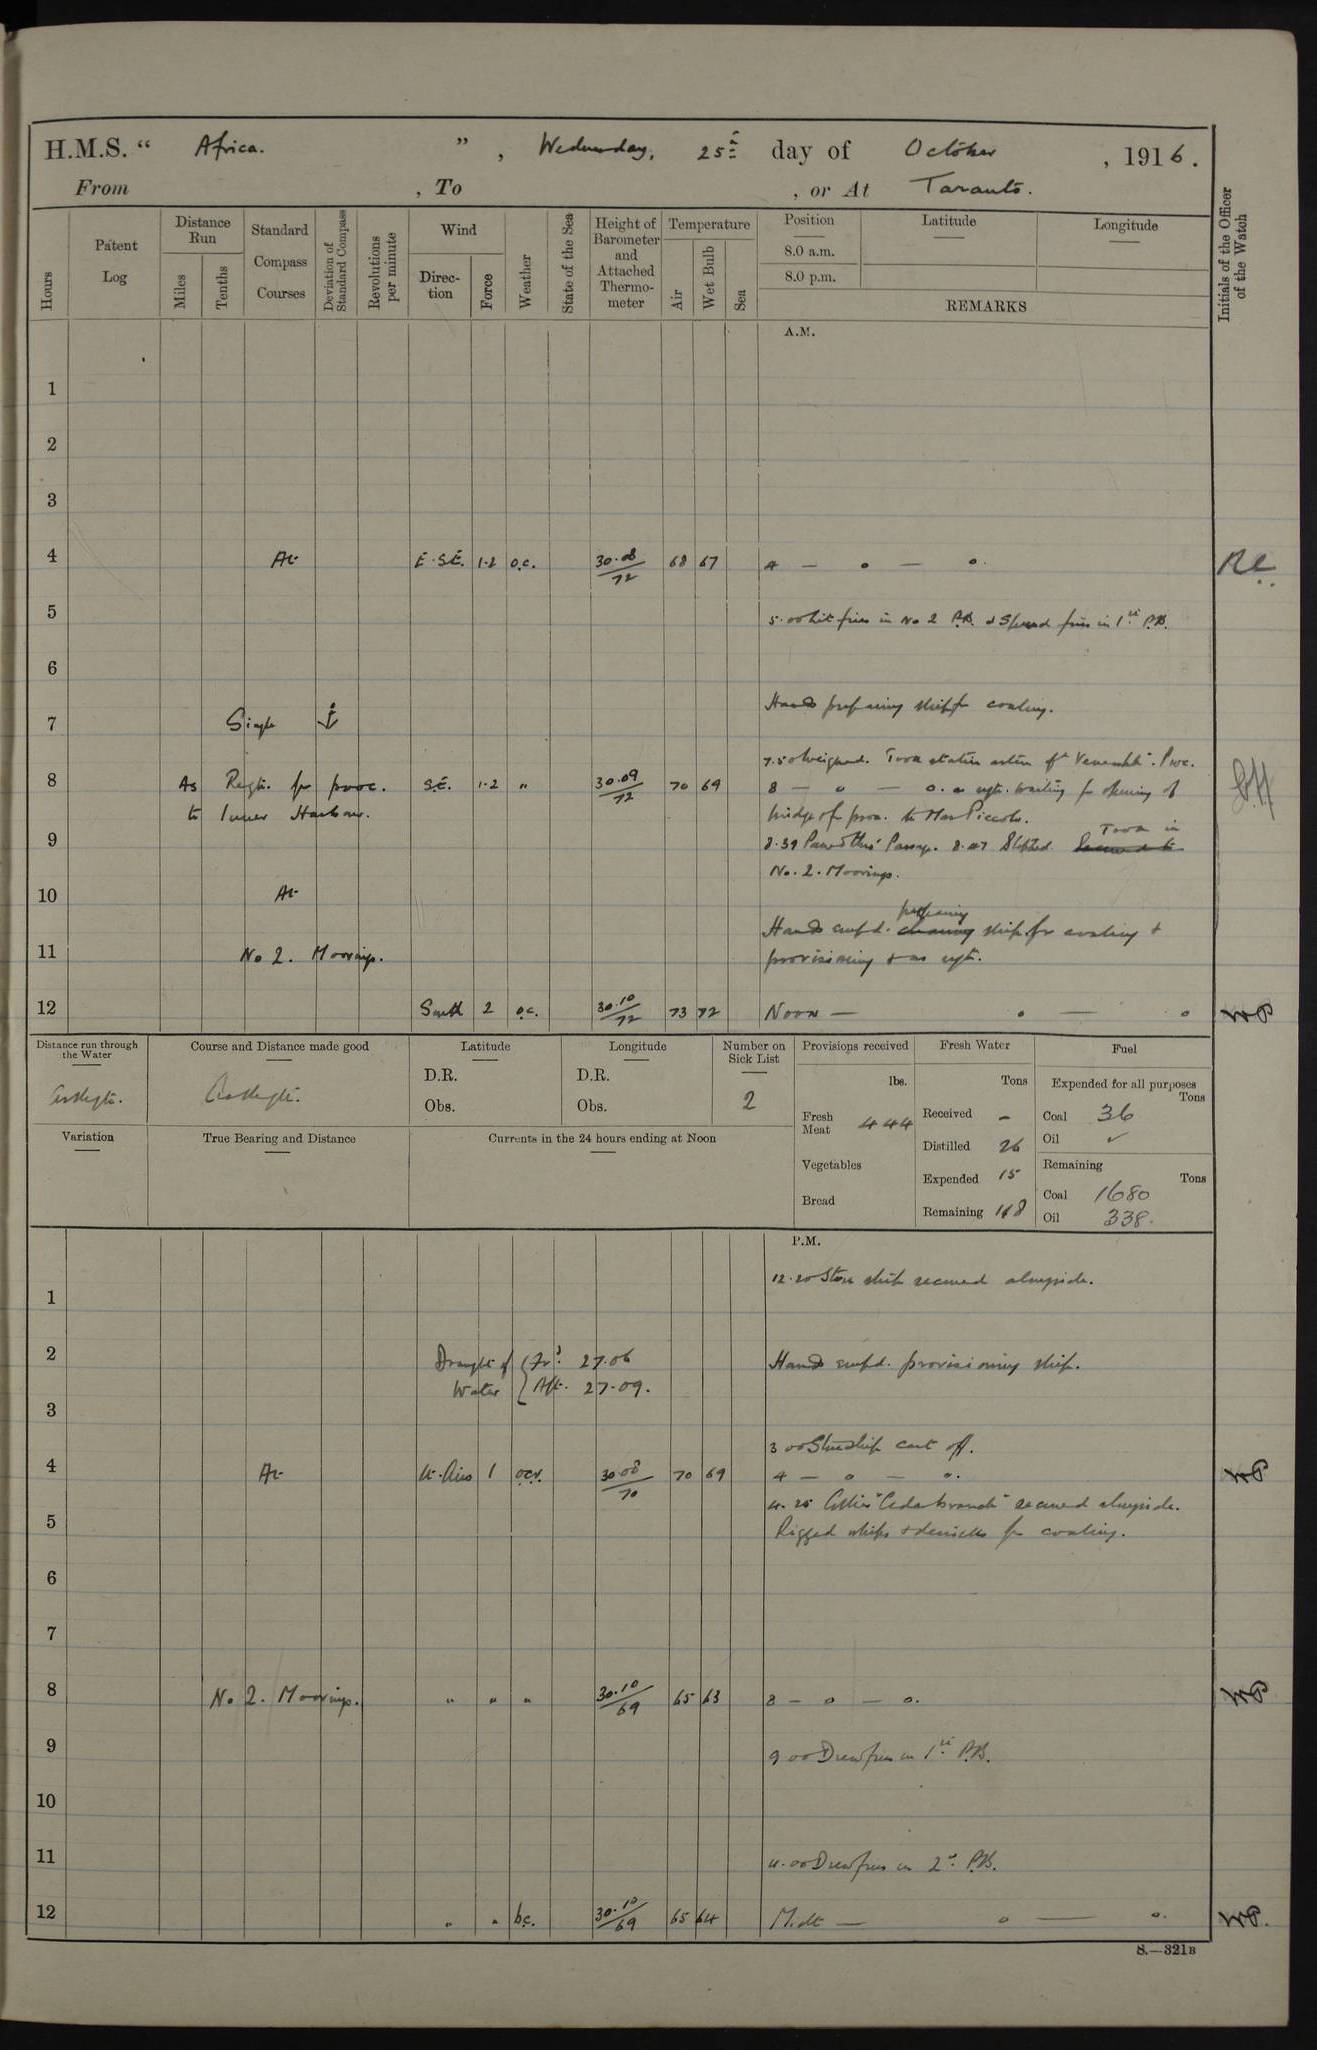 H.M.S. “ Africa. ” , Wednesday, 25th day of October , 1916.
From , To , or At Taranto.
Hours
Patent Log
Distance Run
Miles
Tenths
Standard Compass Courses
Deviation of Standard Compass
Revolutions per minute
Wind
Direction
Force
Weather
State of the Sea
Height of Barometer and Attached Thermometer
Temperature
Air
Wet Bulb
Sea
Position
8.0 a.m.
8.0 p.m.
Latitude
Longitude
REMARKS
Initials of the Officer of the Watch
A.M.
1
2
3
4 At E.S.E. 1-2 o.c. 30.08/72 68 67 4 — o — o.
5 5.00 Lit fires in No 2 P.B. & Spread fires in 1st P.B.
6
Hands preparing ship for coaling.
7 Single
7.50 Weighed. Took station astern of "Venerable". Proc.
8 As Reqte. for proc. S.E. 1-2 " 30.09/72 70 69 8 — o — o. as reqte. waiting for opening of
to Inner Harbour. bridge for proc. to Mar Piccolo.
9 8.39 Passed thro' Passage. 8.47 Stopped. Secured to Took in
No. 2. Moorings.
10 At
Hands empd. cleaning preparing ship for coaling &
11 No 2. Moorings. provisioning & as reqte.
12 South 2 o.c. 30.10/72 73 72 Noon — o — o
Distance run through the Water
Course and Distance made good
Latitude
D.R.
Obs.
Longitude
D.R.
Obs.
Number on Sick List
2
Provisions received
lbs.
Fresh Meat 444
Vegetables
Bread
Fresh Water
Tons
Received -
Distilled 26
Expended 15
Remaining 118
Fuel
Expended for all purposes
Tons
Coal 36
Oil ✓
Remaining
Tons
Coal 1680
Oil 338.
As Reqte.
As Reqte.
Variation
True Bearing and Distance
Currents in the 24 hours ending at Noon
P.M.
12.20 Store ship secured alongside.
1
2 Draught of Water { For'd. 27.06 Hands empd. provisioning ship.
Aft. 27.09.
3
3 00 Storeship cast off.
4 At Lt. Airs 1 30.08/70 70 69 4 — o — o.
4.25 Collier "Cedarbranch" secured alongside.
5 Rigged whips & derricks for coaling.
6
7
8 No 2. Moorings. " " " 30.10/69 65 63 8 — o — o.
9 9 00 Drew fires in 1st P.B.
10
11 11.00 Drew fires in 2nd P.B.
12 " " b.c. 30.10/69 65 64 Midt — o — o.
S.—321B